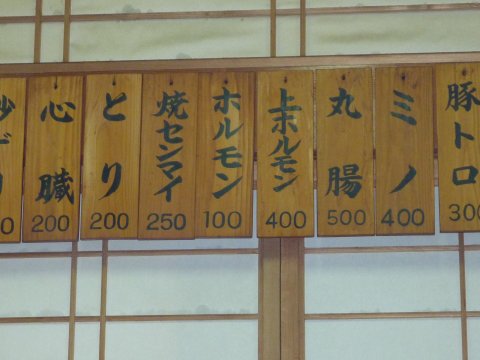 豚トロ
300
ミノ
400
丸腸
500
上ホルモン
400
ホルモン
100
焼センマイ
250
とり
200
心臓
200